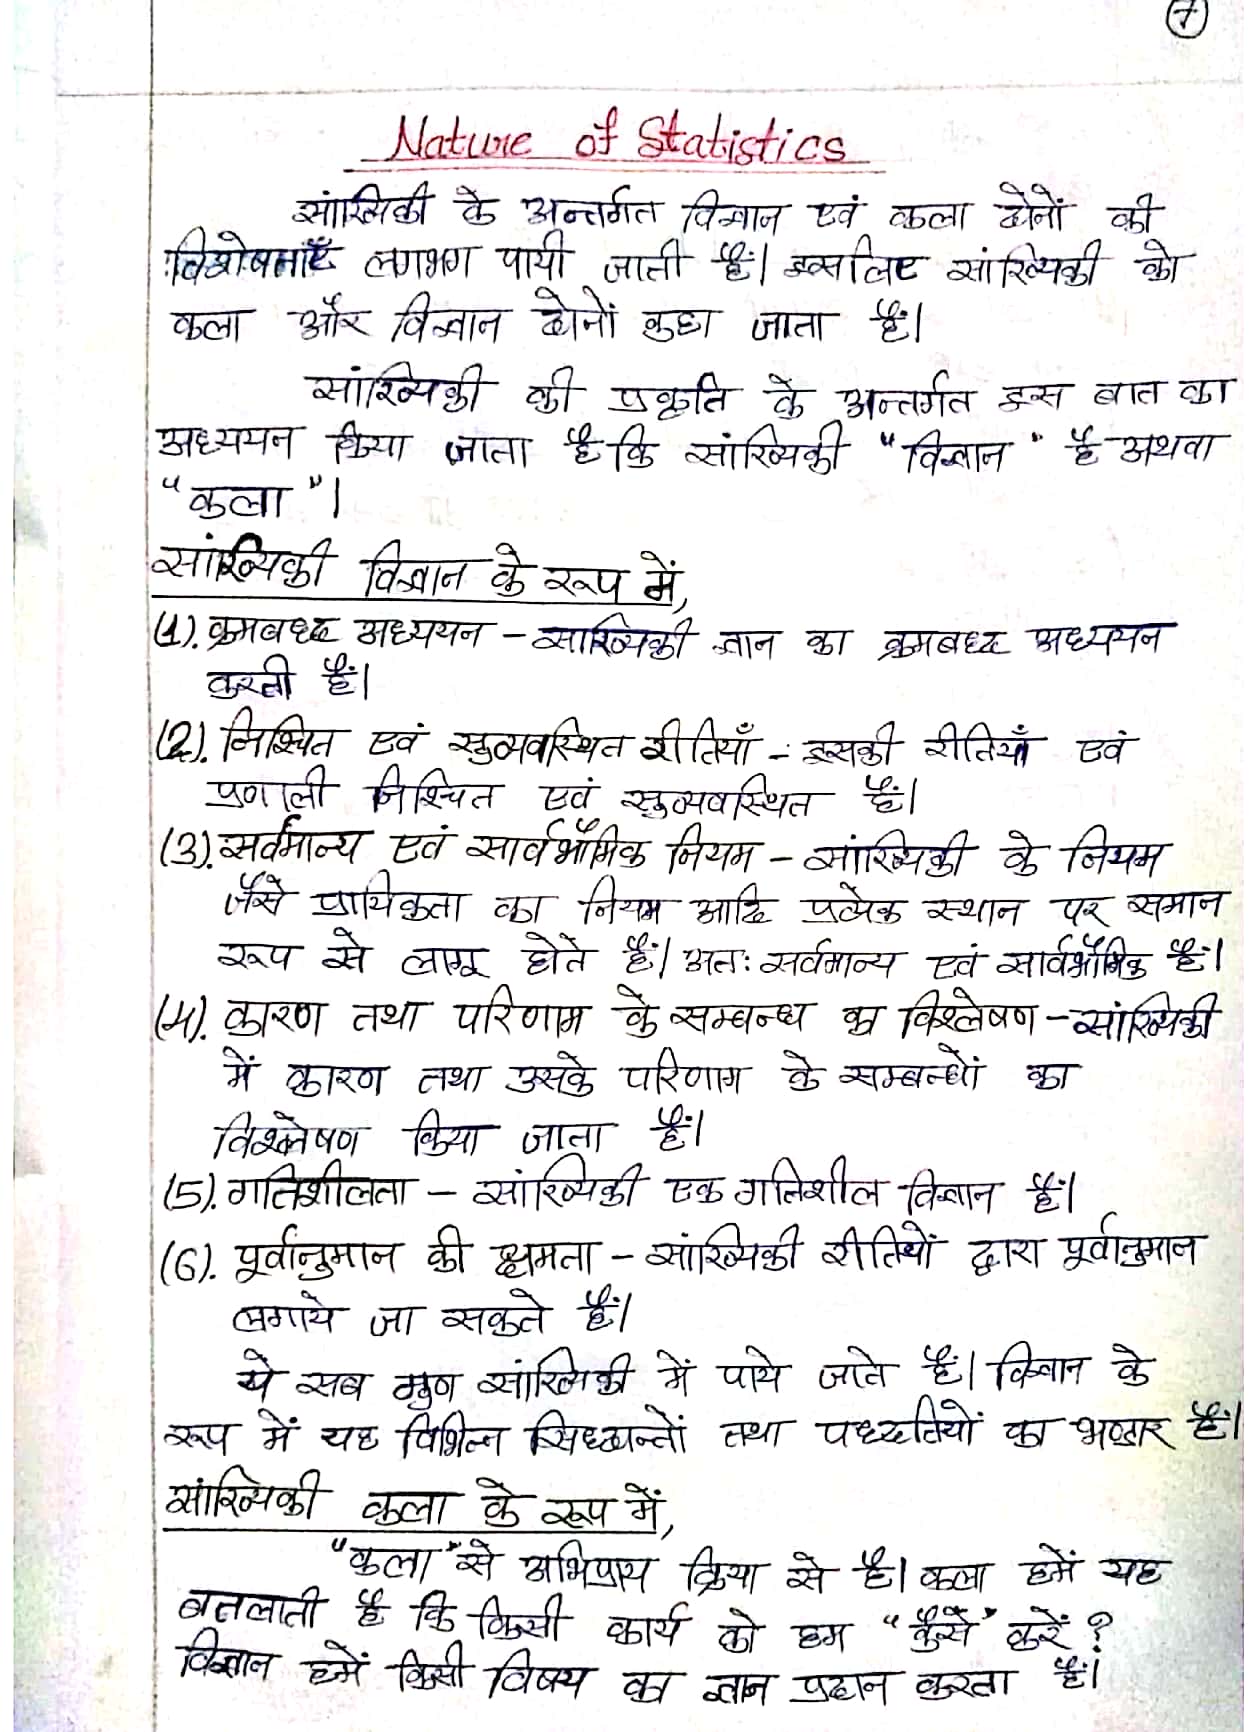 7
Nature of Statistics
सांख्यिकी के अन्तर्गत विज्ञान एवं कला दोनों की
विशेषताएँ लगभग पायी जाती हैं। इसलिए सांख्यिकी को
कला और विज्ञान दोनों कहा जाता हैं।
सांख्यिकी की प्रकृति के अन्तर्गत इस बात का
अध्ययन किया जाता है कि सांख्यिकी "विज्ञान" है अथवा
"कला"।
सांख्यिकी विज्ञान के रूप में,
(1). क्रमबध्द अध्ययन – सांख्यिकी ज्ञान का क्रमबध्द अध्ययन
करती हैं।
(2). निश्चित एवं सुव्यवस्थित रीतियाँ – इसकी रीतियाँ एवं
प्रणाली निश्चित एवं सुव्यवस्थित हैं।
(3). सर्वमान्य एवं सार्वभौमिक नियम – सांख्यिकी के नियम
जैसे प्रायिकता का नियम आदि प्रत्येक स्थान पर समान
रूप से लागू होते हैं। अतः सर्वमान्य एवं सार्वभौमिक हैं।
(4). कारण तथा परिणाम के सम्बन्ध का विश्लेषण – सांख्यिकी
में कारण तथा उसके परिणाम के सम्बन्धों का
विश्लेषण किया जाता हैं।
(5). गतिशीलता – सांख्यिकी एक गतिशील विज्ञान हैं।
(6). पूर्वानुमान की क्षमता – सांख्यिकी रीतियों द्वारा पूर्वानुमान
लगाये जा सकते हैं।
ये सब गुण सांख्यिकी में पाये जाते हैं। विज्ञान के
रूप में यह विभिन्न सिध्दान्तों तथा पध्दतियों का भण्डार हैं।
सांख्यिकी कला के रूप में,
"कला" से अभिप्राय क्रिया से है। कला हमें यह
बतलाती है कि किसी कार्य को हम "कैसे" करें?
विज्ञान हमें किसी विषय का ज्ञान प्रदान करता हैं।